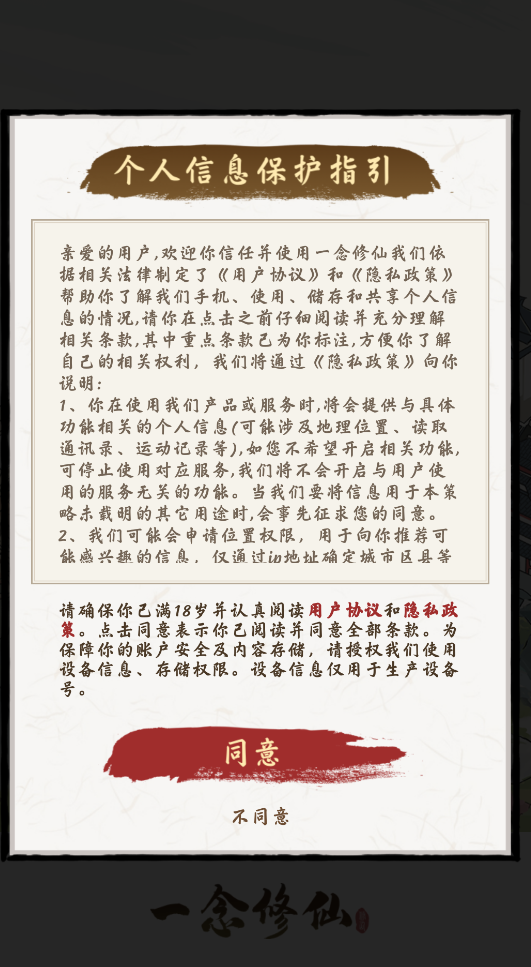 个人信息保护指引
亲爱的用户,欢迎你信任并使用一念修仙我们依
据相关法律制定了《用户协议》和《隐私政策》
帮助你了解我们手机、使用、储存和共享个人信
息的情况,请你在点击之前仔细阅读并充分理解
相关条款,其中重点条款已为你标注,方便你了解
自己的相关权利，我们将通过《隐私政策》向你
说明:
1、你在使用我们产品或服务时,将会提供与具体
功能相关的个人信息(可能涉及地理位置、读取
通讯录、运动记录等),如您不希望开启相关功能,
可停止使用对应服务,我们将不会开启与用户使
用的服务无关的功能。当我们要将信息用于本策
略未载明的其它用途时,会事先征求您的同意。
2、我们可能会申请位置权限，用于向你推荐可
能感兴趣的信息，仅通过ip地址确定城市区县等
请确保你已满18岁并认真阅读用户协议和隐私政
策。点击同意表示你已阅读并同意全部条款。为
保障你的账户安全及内容存储，请授权我们使用
设备信息、存储权限。设备信息仅用于生产设备
号。
同意
不同意
一念修仙